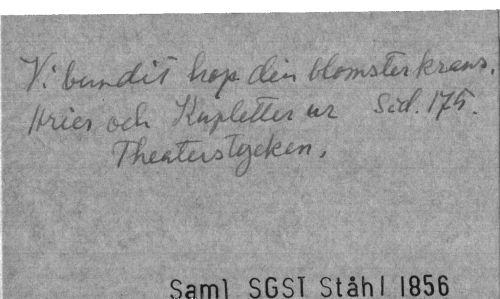 Vi bundit hop din blomsterkrans.
Arier och Kupletter ur Sid. 175.
Theaterstycken.
Saml SGST Ståhl 1856